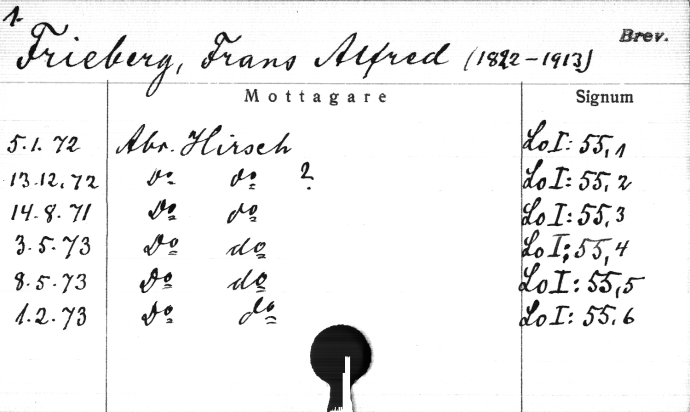 1.
Frieberg, Frans Alfred (1822-1913) Brev.
Mottagare Signum
5.1.72 Abr. Hirsch Lo I: 55,1
13.12.72 Do do ? Lo I: 55,2
14.8.71 Do do Lo I: 55,3
3.5.73 Do do Lo I: 55,4
8.5.73 Do do Lo I: 55,5
1.2.73 Do do Lo I: 55.6